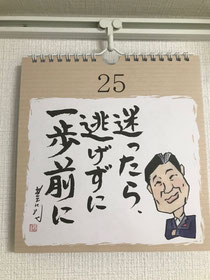 25
迷ったら、
逃げずに
一歩前に